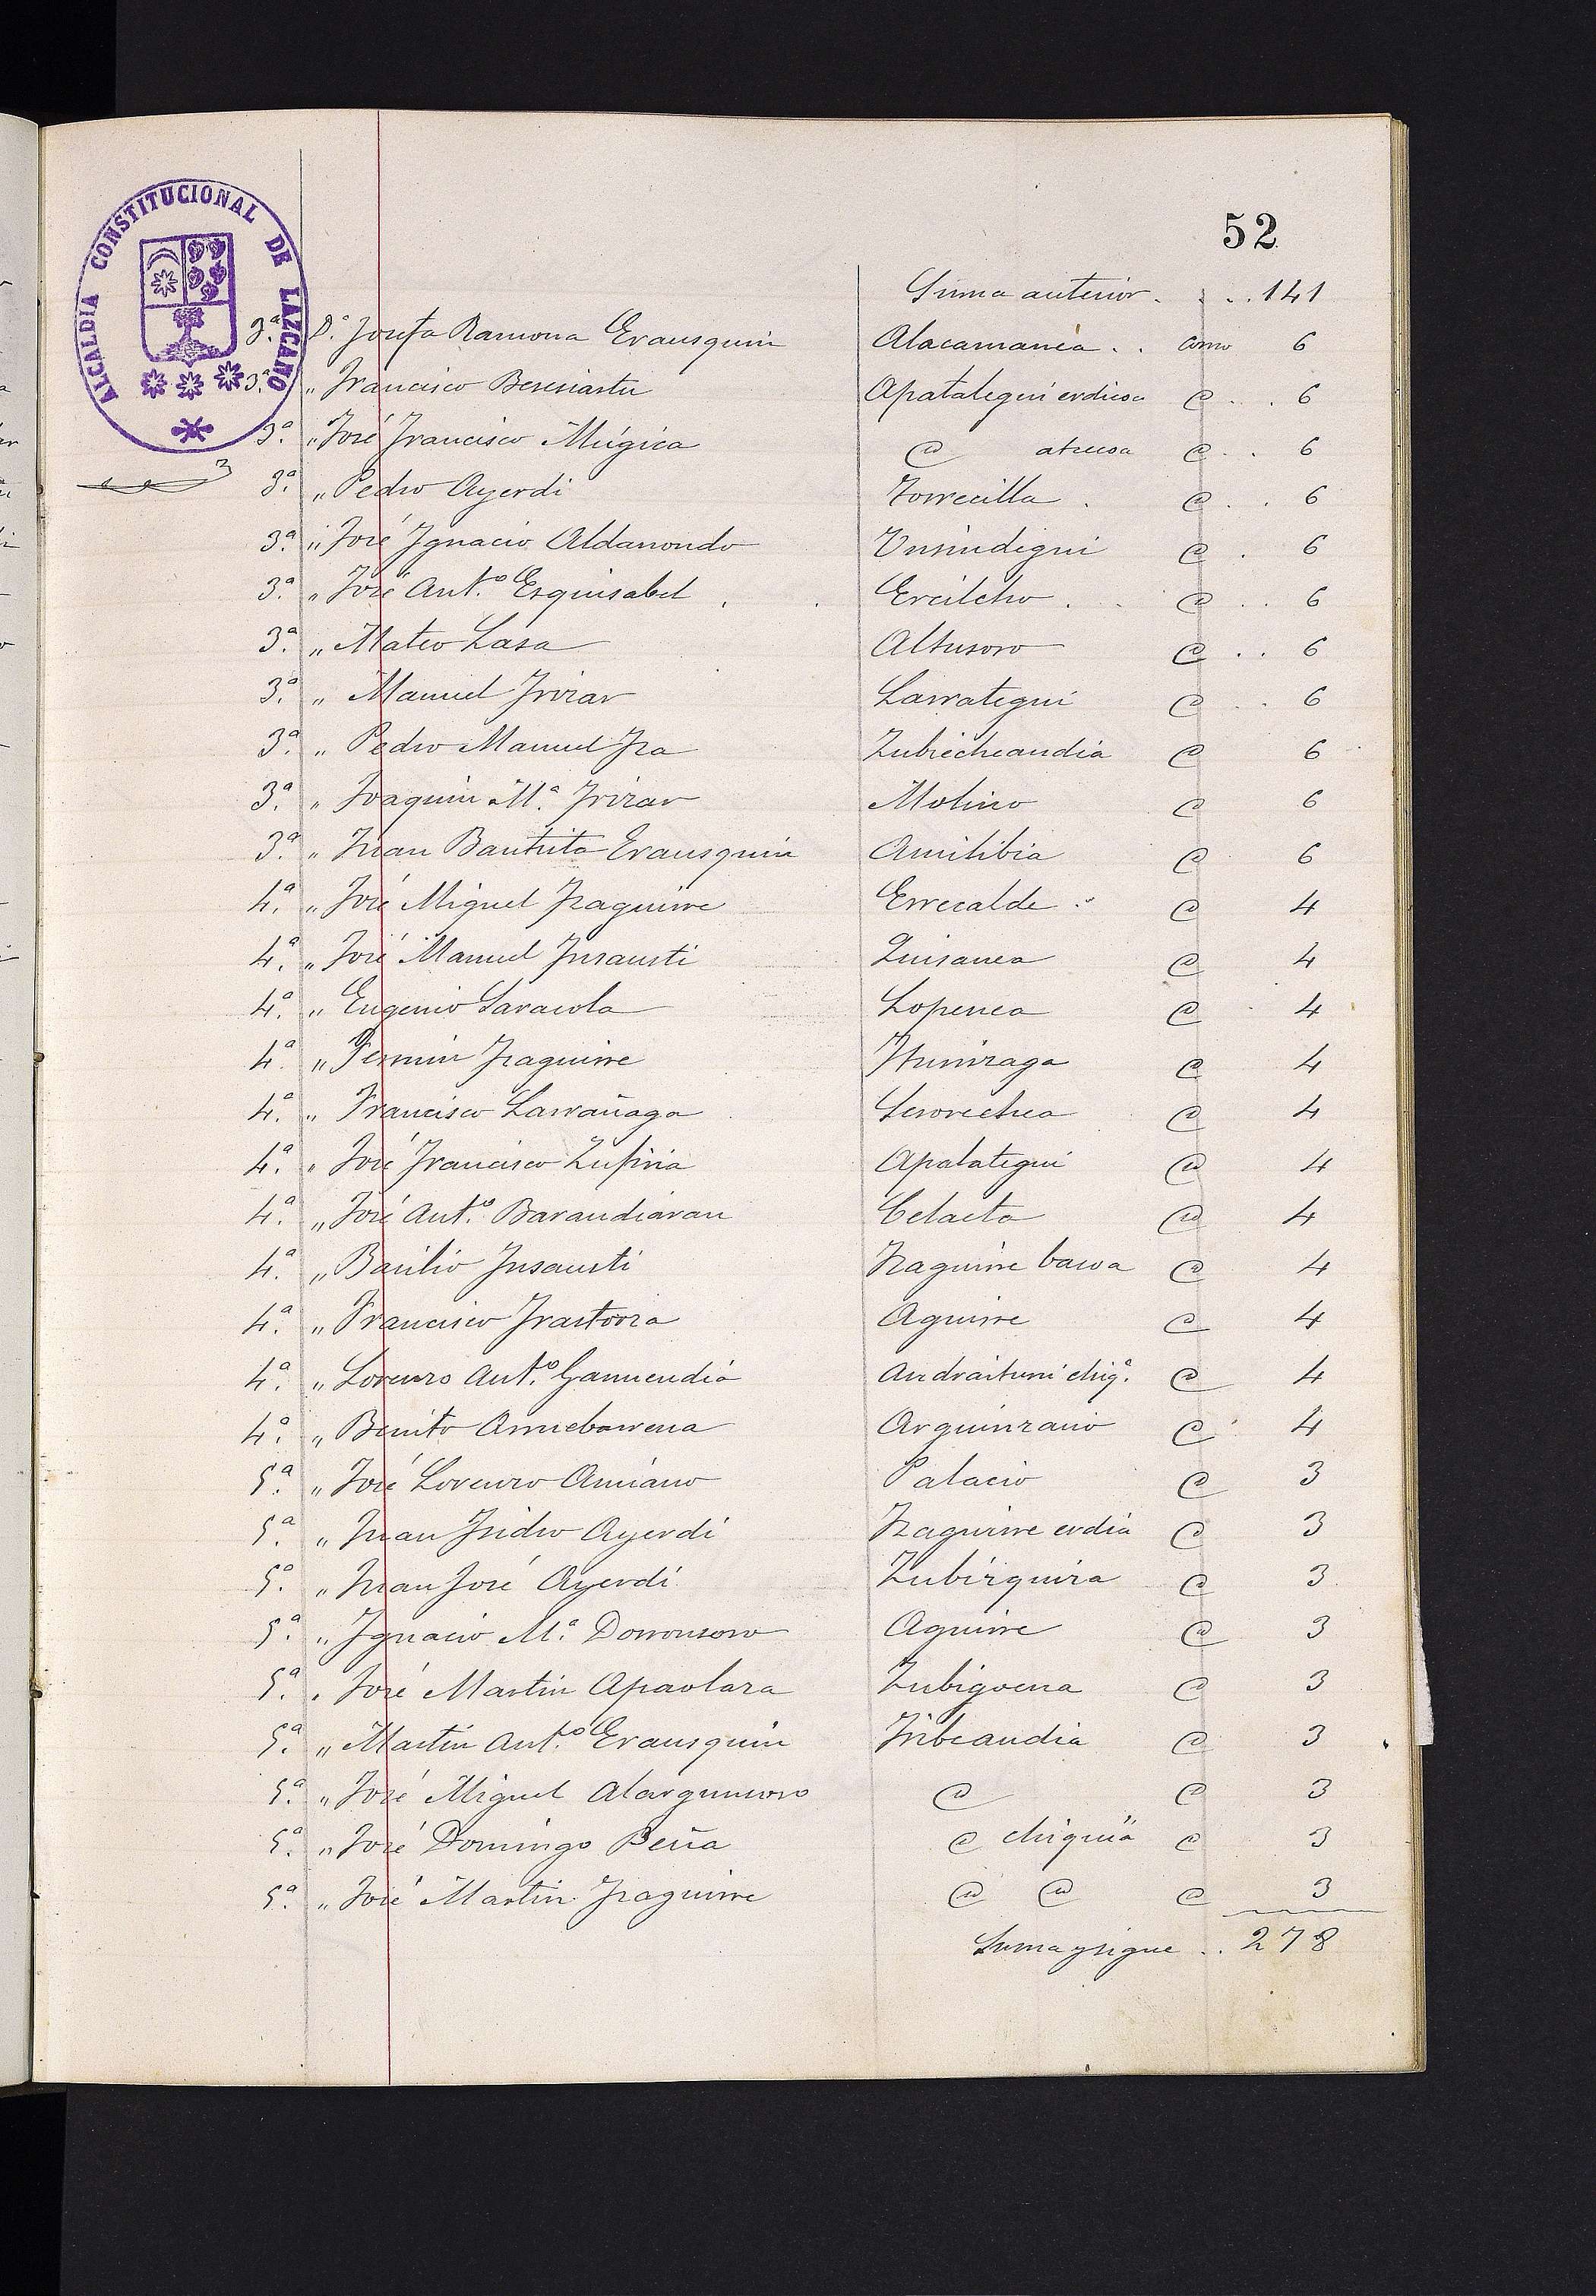 52
ALCALDIA CONSTITUCIONAL DE LAZCANO
Suma anterior . . . . 141
3ª. Dª. Josefa Ramona Erausquin Alacamanéa . . como 6
3ª. „ Francisco Beresiartu Apatalegui erdicoa @ . . 6
3ª. „ José Francisco Múgica @ atsecoa @ . . 6
3ª. „ Pedro Ayerdi Torrecilla . @ . . 6
3ª. „ José Ygnacio Aldanondo Unsindegui @ . 6
3ª. „ José Ant.º Esquisabel Ercilcho . . . @ . . 6
3ª. „ Mateo Lasa Altusoro @ . . 6
3ª. „ Manuel Yrizar Larrategui @ . . 6
3ª. „ Pedro Manuel Yza Zubiecheandia @ 6
3ª. „ Joaquin Mª. Yrizar Molino @ 6
3ª. „ Juan Bautista Erausquin Amilibia @ 6
4ª. „ José Miguel Yzaguirre Errecalde @ 4
4ª. „ José Manuel Ynsausti Quisanea @ 4
4ª. „ Eugenio Saracola Lopenea @ 4
4ª. „ Fermin Yzaguirre Yturrizaga @ 4
4ª. „ Francisco Larrañaga Serorechea @ 4
4ª. „ José Francisco Zufiria Apalategui @ 4
4ª. „ José Ant.º Barandiáran Celaeta @ 4
4ª. „ Basilio Ynsausti Yzaguirre baroa @ 4
4ª. „ Francisco Yrastorza Aguirre @ 4
4ª. „ Lorenzo Ant.º Garmendia Andraituri chiqª. @ 4
4ª. „ Benito Arruebarrena Arguinzano @ 4
5ª. „ José Lorenzo Amiano Palacio @ 3
5ª. „ Juan Ysidro Ayerdi Yzaguirre erdia @ 3
5ª. „ Juan José Ayerdi Zubizquira @ 3
5ª. „ Ygnacio Mª. Dorronsoro Aguirre @ 3
5ª. „ José Martin Apaolaza Zubigoena @ 3
5ª. „ Martin Ant.º Erausquin Yribeandia @ 3
5ª. „ José Miguel Alargunsoro @ @ 3
5ª. „ José Domingo Peña @ chiquia @ 3
5ª. „ José Martin Yzaguirre @ @ @ 3
Suma y sigue . . 278